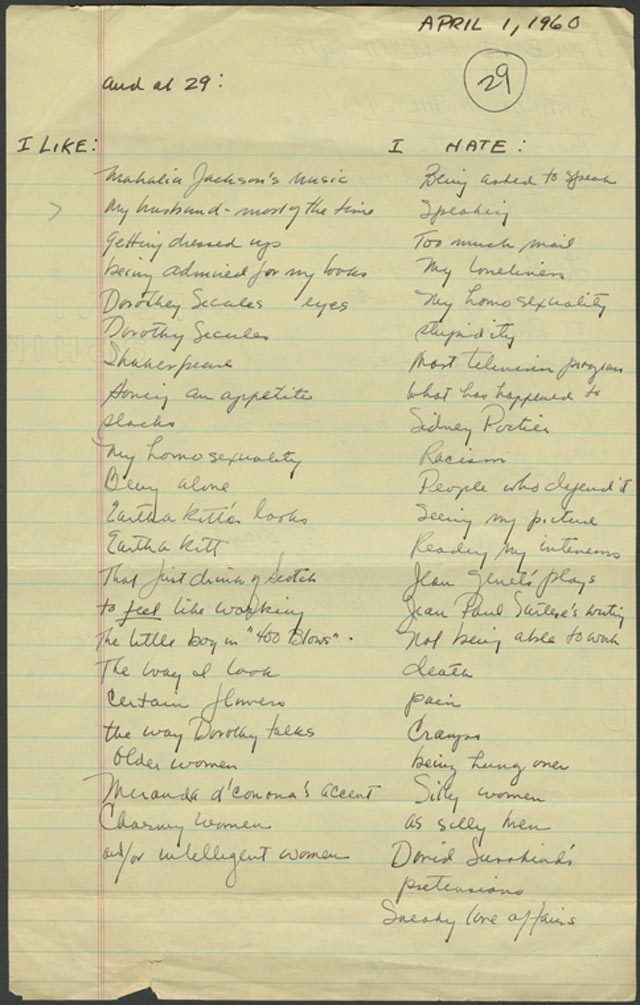 APRIL 1, 1960
29
and at 29:
I LIKE:
Mahalia Jackson's music
My husband - most of the time
getting dressed up
being admired for my looks
Dorothy Secules eyes
Dorothy Secules
Shakespeare
Having an appetite
slacks
My homosexuality
Being alone
Eartha Kitt's looks
Eartha Kitt
That first drink of Scotch
to feel like working
The little boy in "400 Blows".
The way I look
Certain flowers
the way Dorothy talks
Older women
Miranda d'Corona's accent
Charming women
and/or intelligent women
I HATE:
Being asked to speak
Speaking
Too much mail
My loneliness
My homosexuality
stupidity
Most television programs
What has happened to
Sidney Poitier
Racism
People who defend it
Seeing my picture
Reading my interviews
Jean Genet's plays
Jean Paul Sartre's writing
Not being able to work
death
pain
Cramps
being hung over
Silly women
as silly men
David Susskind's
pretensions
Sneaky love affairs